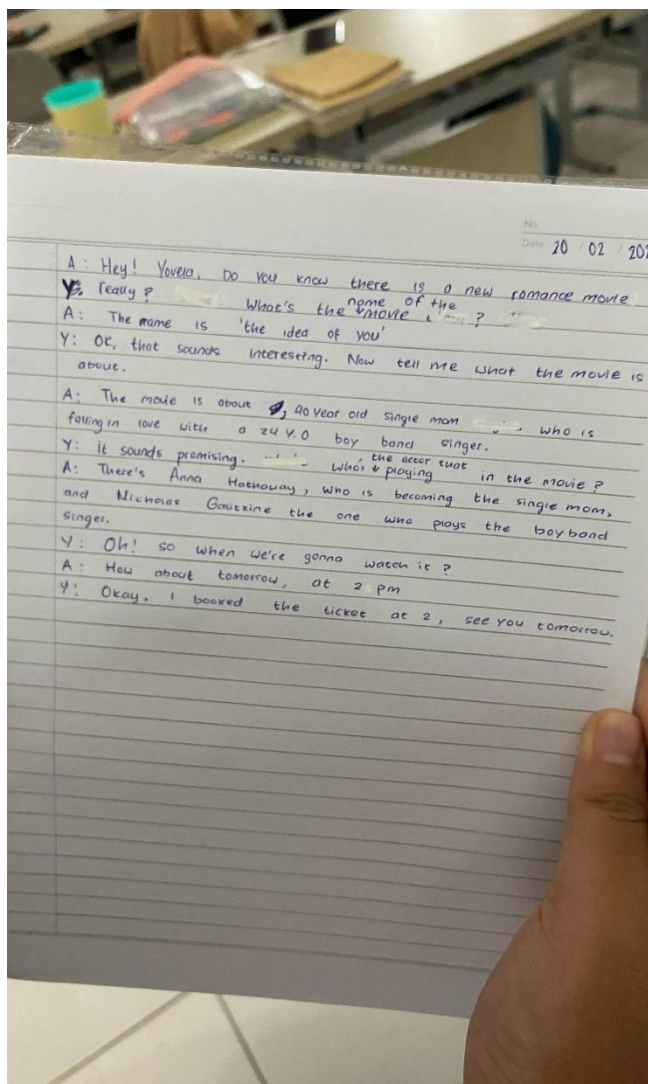 No.
Date 20 / 02 / 202
A : Hey! Yovela, Do you know there is a new romance movie
Y: really? What's the name of the movie ?
A : The name is 'the idea of you'
Y: OK, that sounds interesting. Now tell me what the movie is
about.
A: The movie is about 40 year old single mom who is
falling in love with a 24 Y.O boy band singer.
Y: It sounds promising. who's the actor that playing in the movie?
A: There's Anna Hathaway, who is becoming the single mom,
and Nicholas Gautzine the one who plays the boyband
singer.
Y: Oh! so when we're gonna watch it?
A: How about tomorrow, at 2 pm
Y: Okay, I booked the ticket at 2, see you tomorrow.